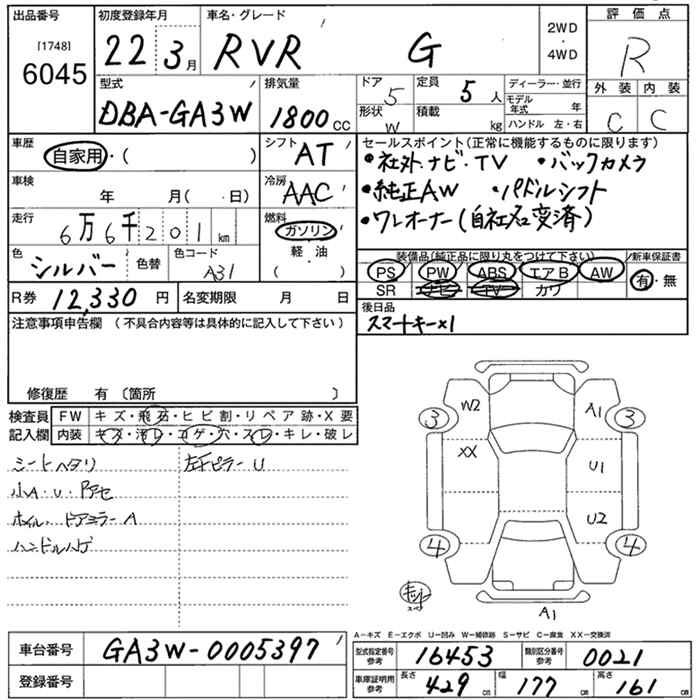 出品番号 [1748] 6045
初度登録年月 22 3月
車名・グレード RVR G
2WD・4WD
評価点 R
型式 DBA-GA3W
排気量 1800 CC
ドア 5
形状 W
定員 5人
積載 kg
ディーラー・並行
モデル年式 年
ハンドル 左・右
外装 C
内装 C
車歴 自家用・( )
シフト AT
車検 年 月( ・ 日)
冷房 AAC
走行 6万6千201km
燃料 ガソリン 軽・油 ( )
色 シルバー 色替
色コード A31
R券 12,330円
名変期限 月 日
セールスポイント(正常に機能するものに限ります)
・社外ナビ・TV ・バックカメラ
・純正AW ・パドルシフト
・ワンオーナー(自社名変済)
装備品(純正品に限り丸をつけて下さい)
新車保証書
PS PW ABS エアB AW
有・無
SR ナビ TV カワ
後日品
スマートキー×1
注意事項申告欄(不具合内容等は具体的に記入して下さい)
修復歴 有〔箇所 〕
検査員記入欄
FW キズ・飛石・ヒビ割・リペア跡・X要
内装 キズ・汚レ・コゲ・穴・スレ・キレ・破レ
シートヘタリ
左千ピラーU
小A・U・Pアセ
ホイル・ドアミラーA
ハンドルハゲ
W2 A1
3 3
XX U1
U2
4 4
A1
A-キズ E-エクボ U-凹み W-補修跡 S-サビ C-腐食 XX-交換済
車台番号 GA3W-0005397
登録番号
型式指定番号 参考 16453
類別区分番号 参考 0021
車庫証明用 参考 長さ 429cm 幅 177cm 高さ 161cm